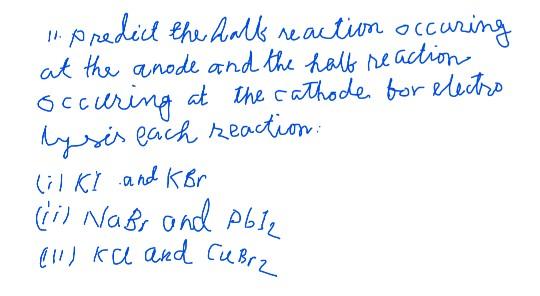 11. predict the halb reaction occuring
at the anode and the halb reaction
occuring at the cathode bor electro
lysis each reaction:
(i) KI and KBr
(ii) NaBr and PbI2
(III) KCl and CuBr2